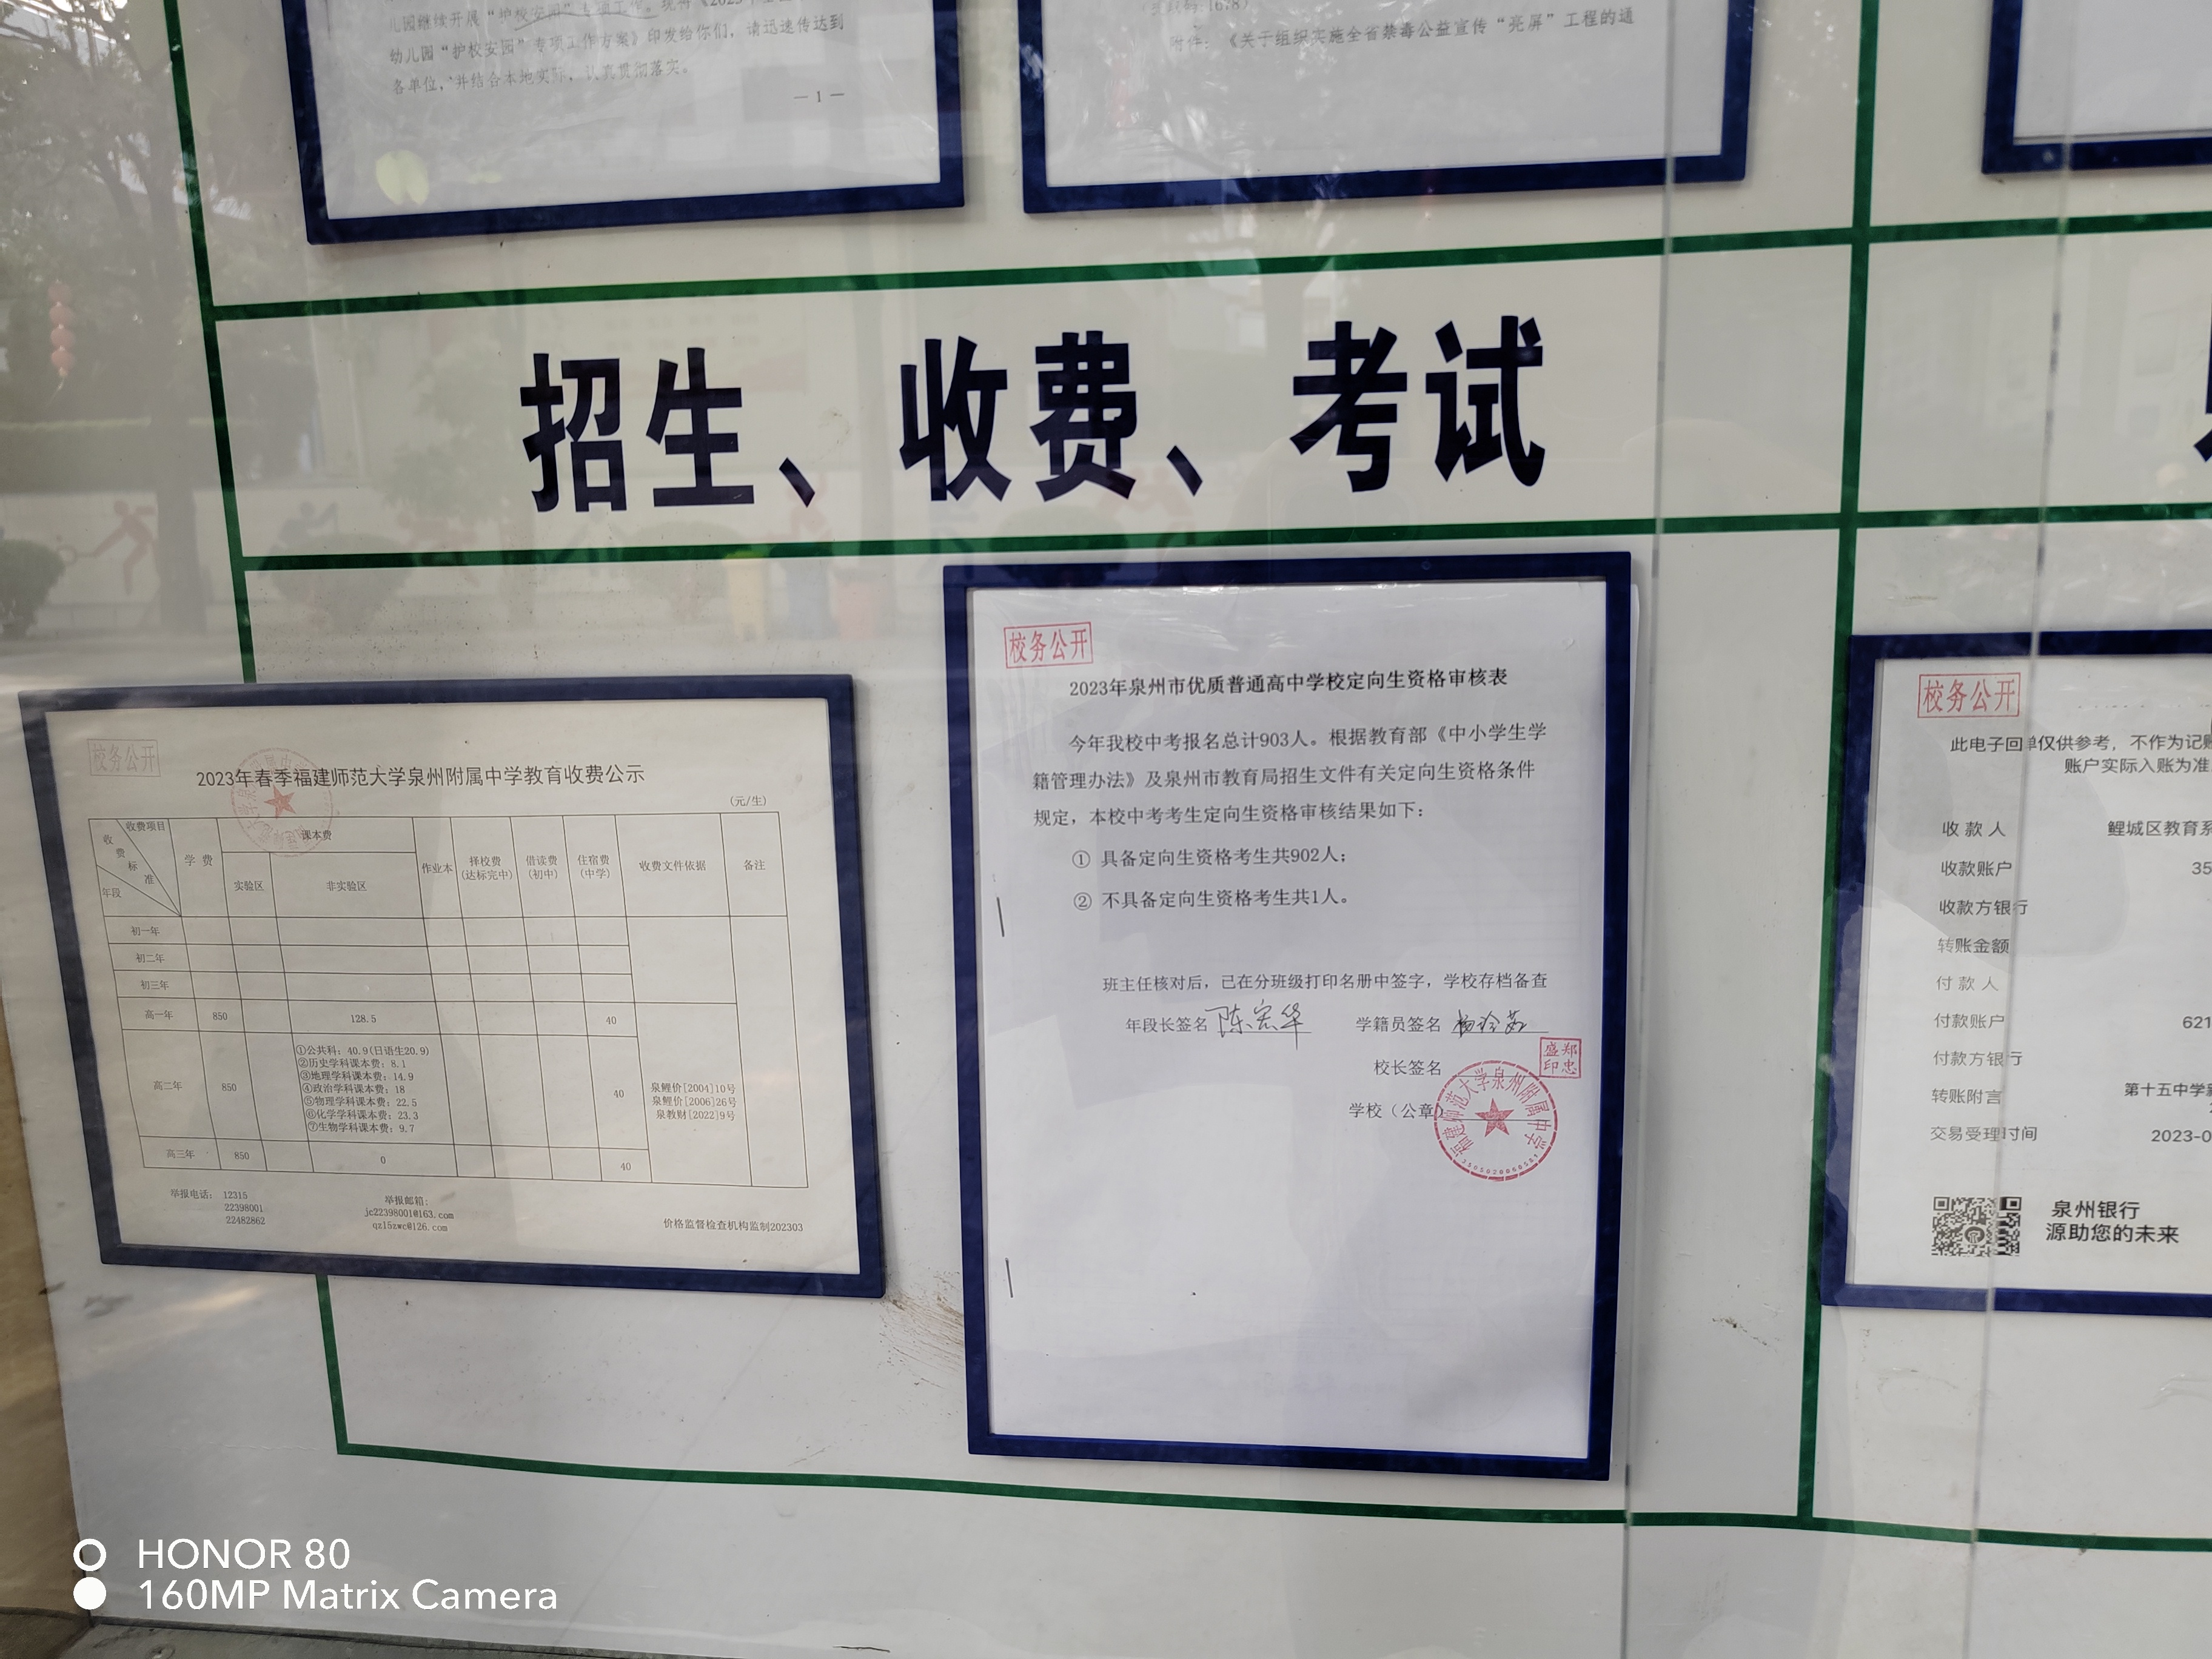 幼儿园“护校安园”专项工作方案》印发给你们，请迅速传达到
各单位，并结合本地实际，认真贯彻落实。
— 1 —
附件：《关于组织实施全省禁毒公益宣传“亮屏”工程的通
招生、收费、考试
校务公开
2023年春季福建师范大学泉州附属中学教育收费公示
(元/生)
收费项目
收费标准
年段
学费
课本费
实验区
非实验区
作业本
择校费
(达标完中)
借读费
(初中)
住宿费
(中学)
收费文件依据
备注
初一年
初二年
初三年
高一年 850 128.5 40
高二年 850
①公共科：40.9(日语生20.9)
②历史学科课本费：8.1
③地理学科课本费：14.9
④政治学科课本费：18
⑤物理学科课本费：22.5
⑥化学学科课本费：23.3
⑦生物学科课本费：9.7
40
泉鲤价[2004]10号
泉鲤价[2006]26号
泉教财[2022]9号
高三年 850 0 40
举报电话： 12315
22398001
22482862
举报邮箱：
jc22398001@163.com
qz15zwc@126.com
价格监督检查机构监制202303
校务公开
2023年泉州市优质普通高中学校定向生资格审核表
今年我校中考报名总计903人。根据教育部《中小学生学
籍管理办法》及泉州市教育局招生文件有关定向生资格条件
规定，本校中考考生定向生资格审核结果如下：
① 具备定向生资格考生共902人；
② 不具备定向生资格考生共1人。
班主任核对后，已在分班级打印名册中签字，学校存档备查
年段长签名 陈宏华 学籍员签名
校长签名
郑忠盛印
学校（公章）
福建师范大学泉州附属中学
校务公开
此电子回单仅供参考，不作为记账
账户实际入账为准
收款人 鲤城区教育系
收款账户 35
收款方银行
转账金额
付款人
付款账户 621
付款方银行
转账附言 第十五中学
交易受理时间 2023-0
泉州银行
源助您的未来
HONOR 80
160MP Matrix Camera